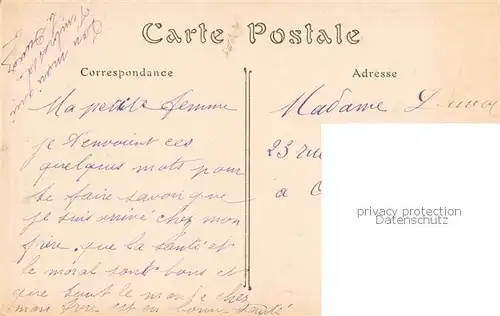 Carte Postale
Correspondance
Adresse
Ma petite femme
je t'envoint ces
quelques mots pour
te faire savoir que
je suis arrivé chez mon
frère. que la santé et
le moral sont bons et
que tout le monde chez
mon frère est en bonne santé
Ton mari qui
Madame
23 rue
à
privacy protection
Datenschutz